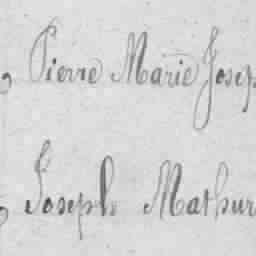 Pierre Marie Josep
Joseph Mathur